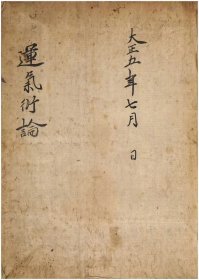 大正五年七月 日
運氣術論